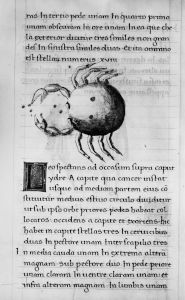 ras In tertio pede unam In quarto primo
unam obscuram In ore unam In ea que
la posterior dicitur tres similes non gran
des In sinistra similes duas Et ita omnino
est stellarum numerus xviii
eo spectans ad occasum supra caput
ydre A capite qua cancer instat
usque ad mediam partem eius
stituitur medius estivo circulo dividitur
ut sub ipso orbe priores pedes habeat
locatos occidens a capite et exoriens hic
habet in capite stellas tres In cervicibus
duas In pectore unam Inter scapulis tres
In media cauda unam In extrema altera
magnam Sub pectore duas In pede priore
unam claram In ventre claram unam et
infra alteram magnam In lumbis unam